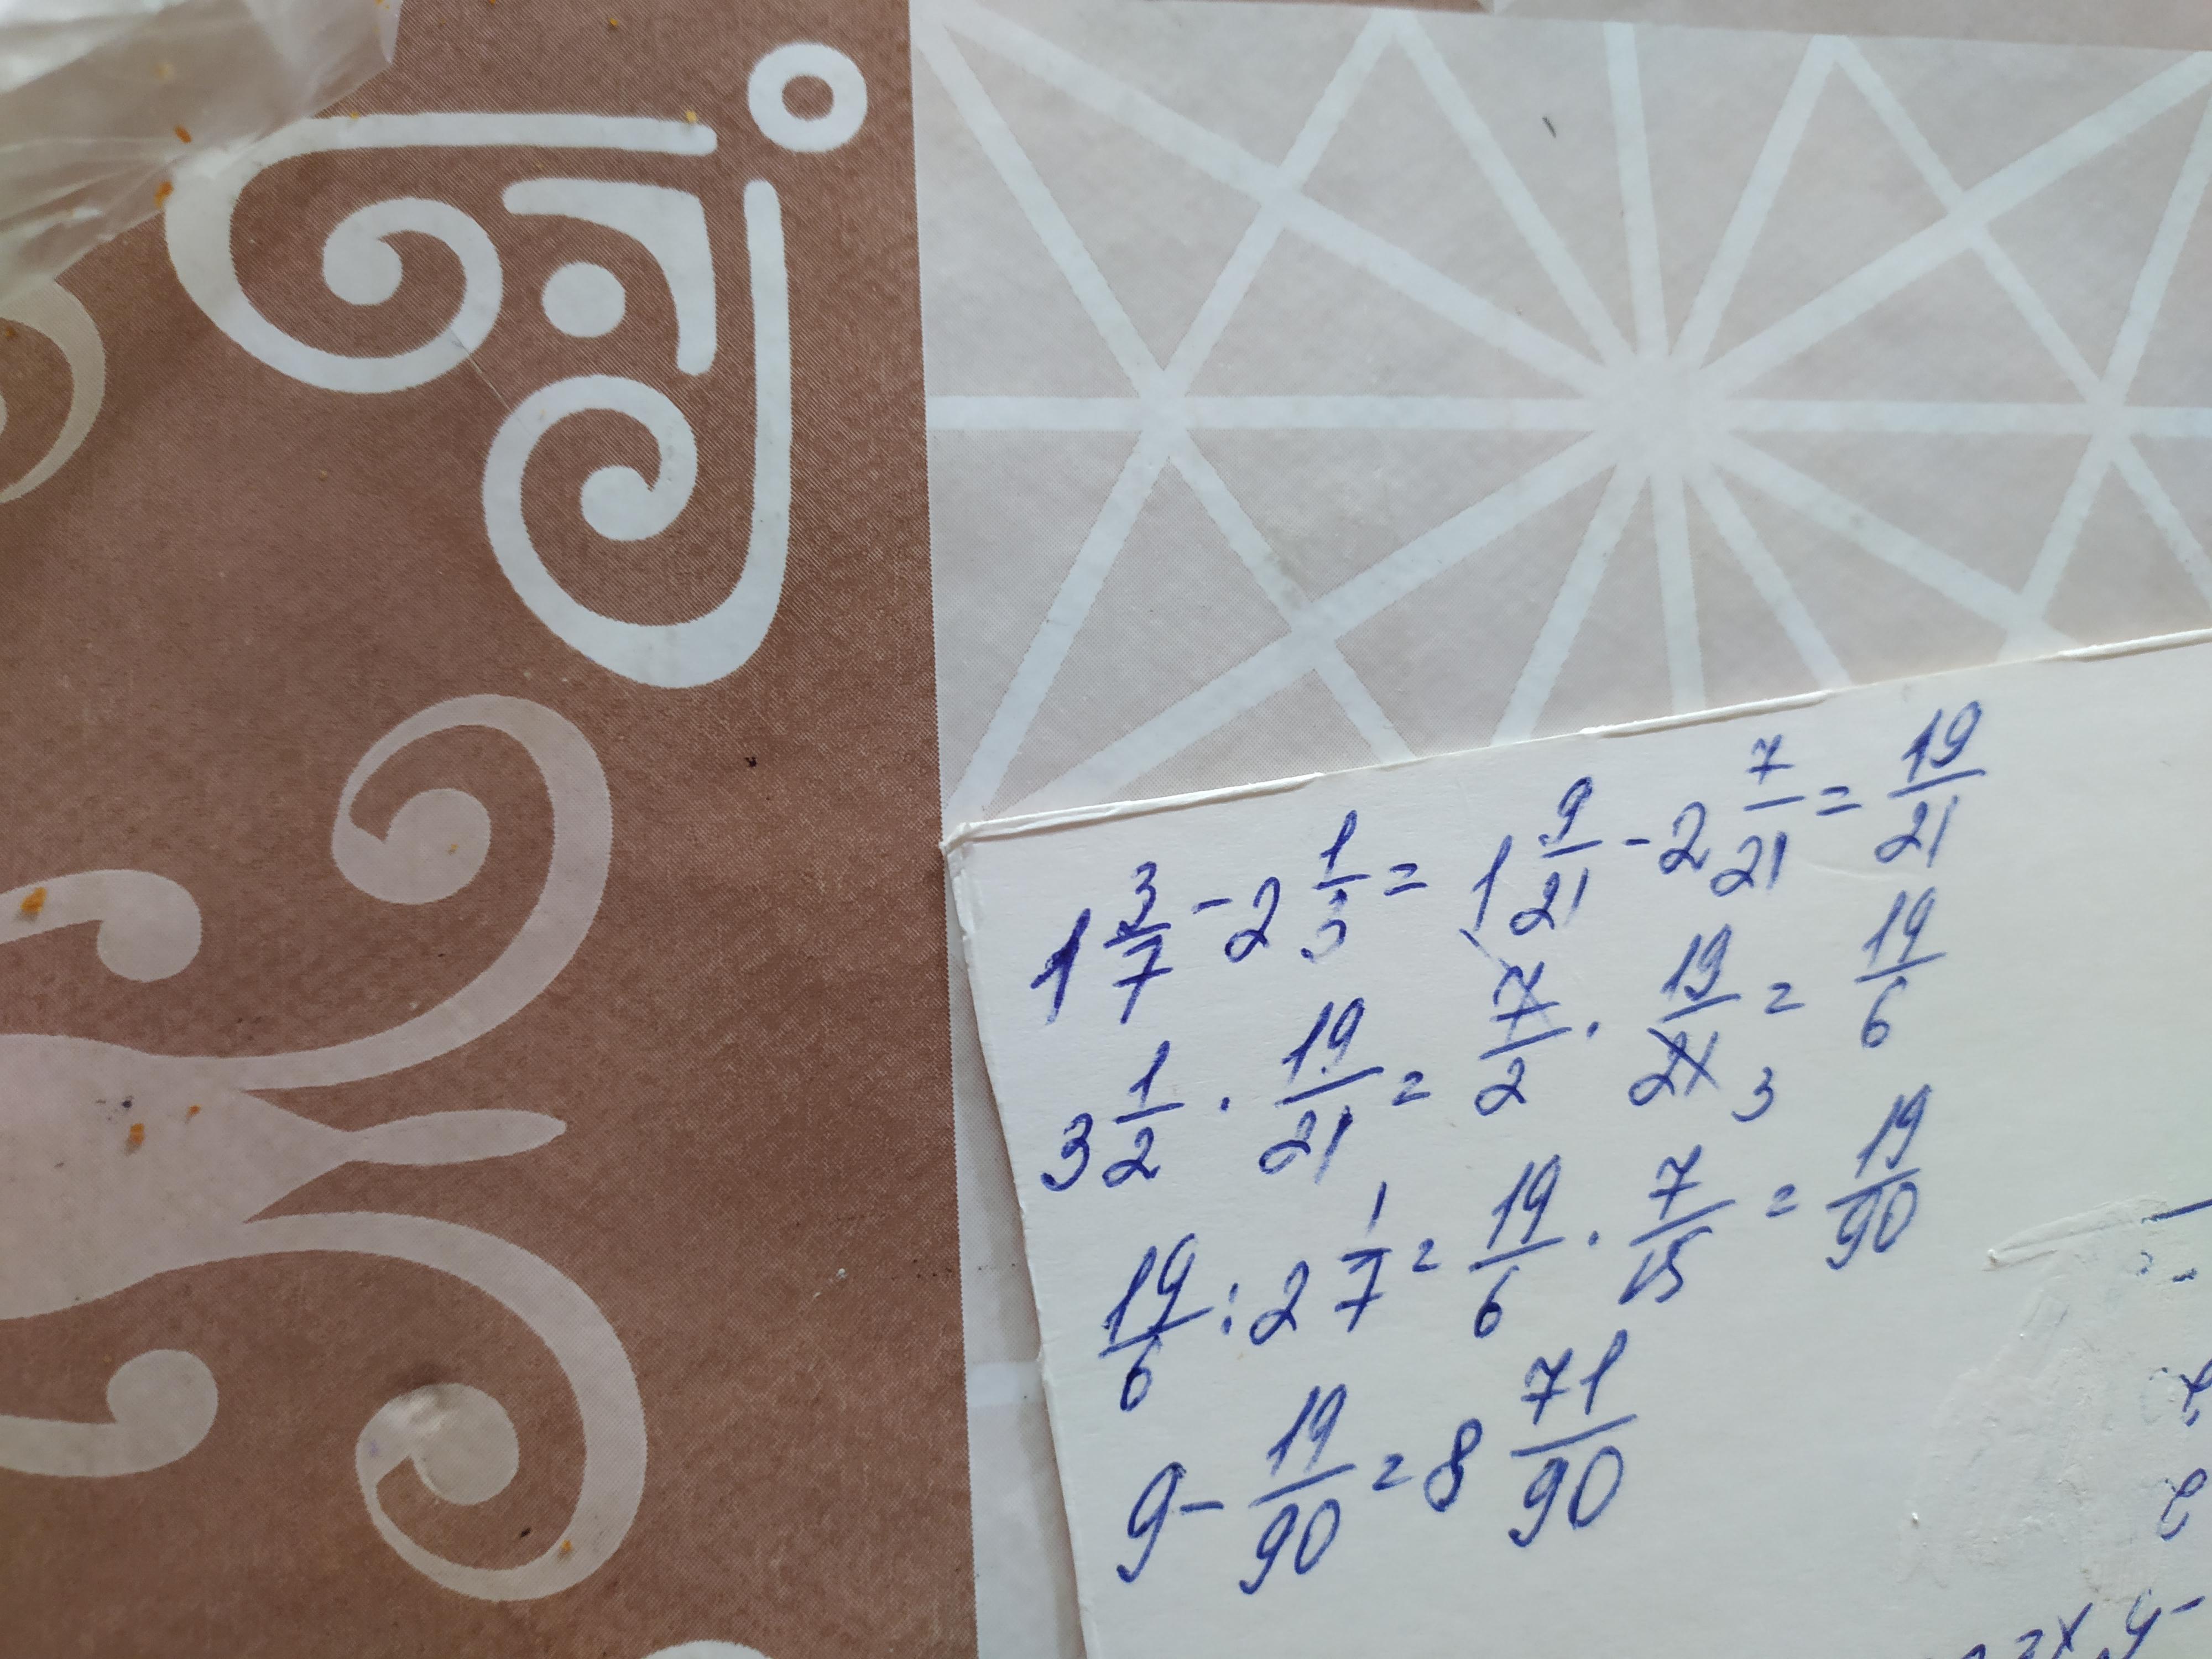 1 3/7 - 2 1/3 = 1 9/21 - 2 7/21 = 19/21
3 1/2 · 19/21 = 7/2 · 19/21 3 = 19/6
19/6 : 2 1/7 = 19/6 · 7/15 = 19/90
9 - 19/90 = 8 71/90